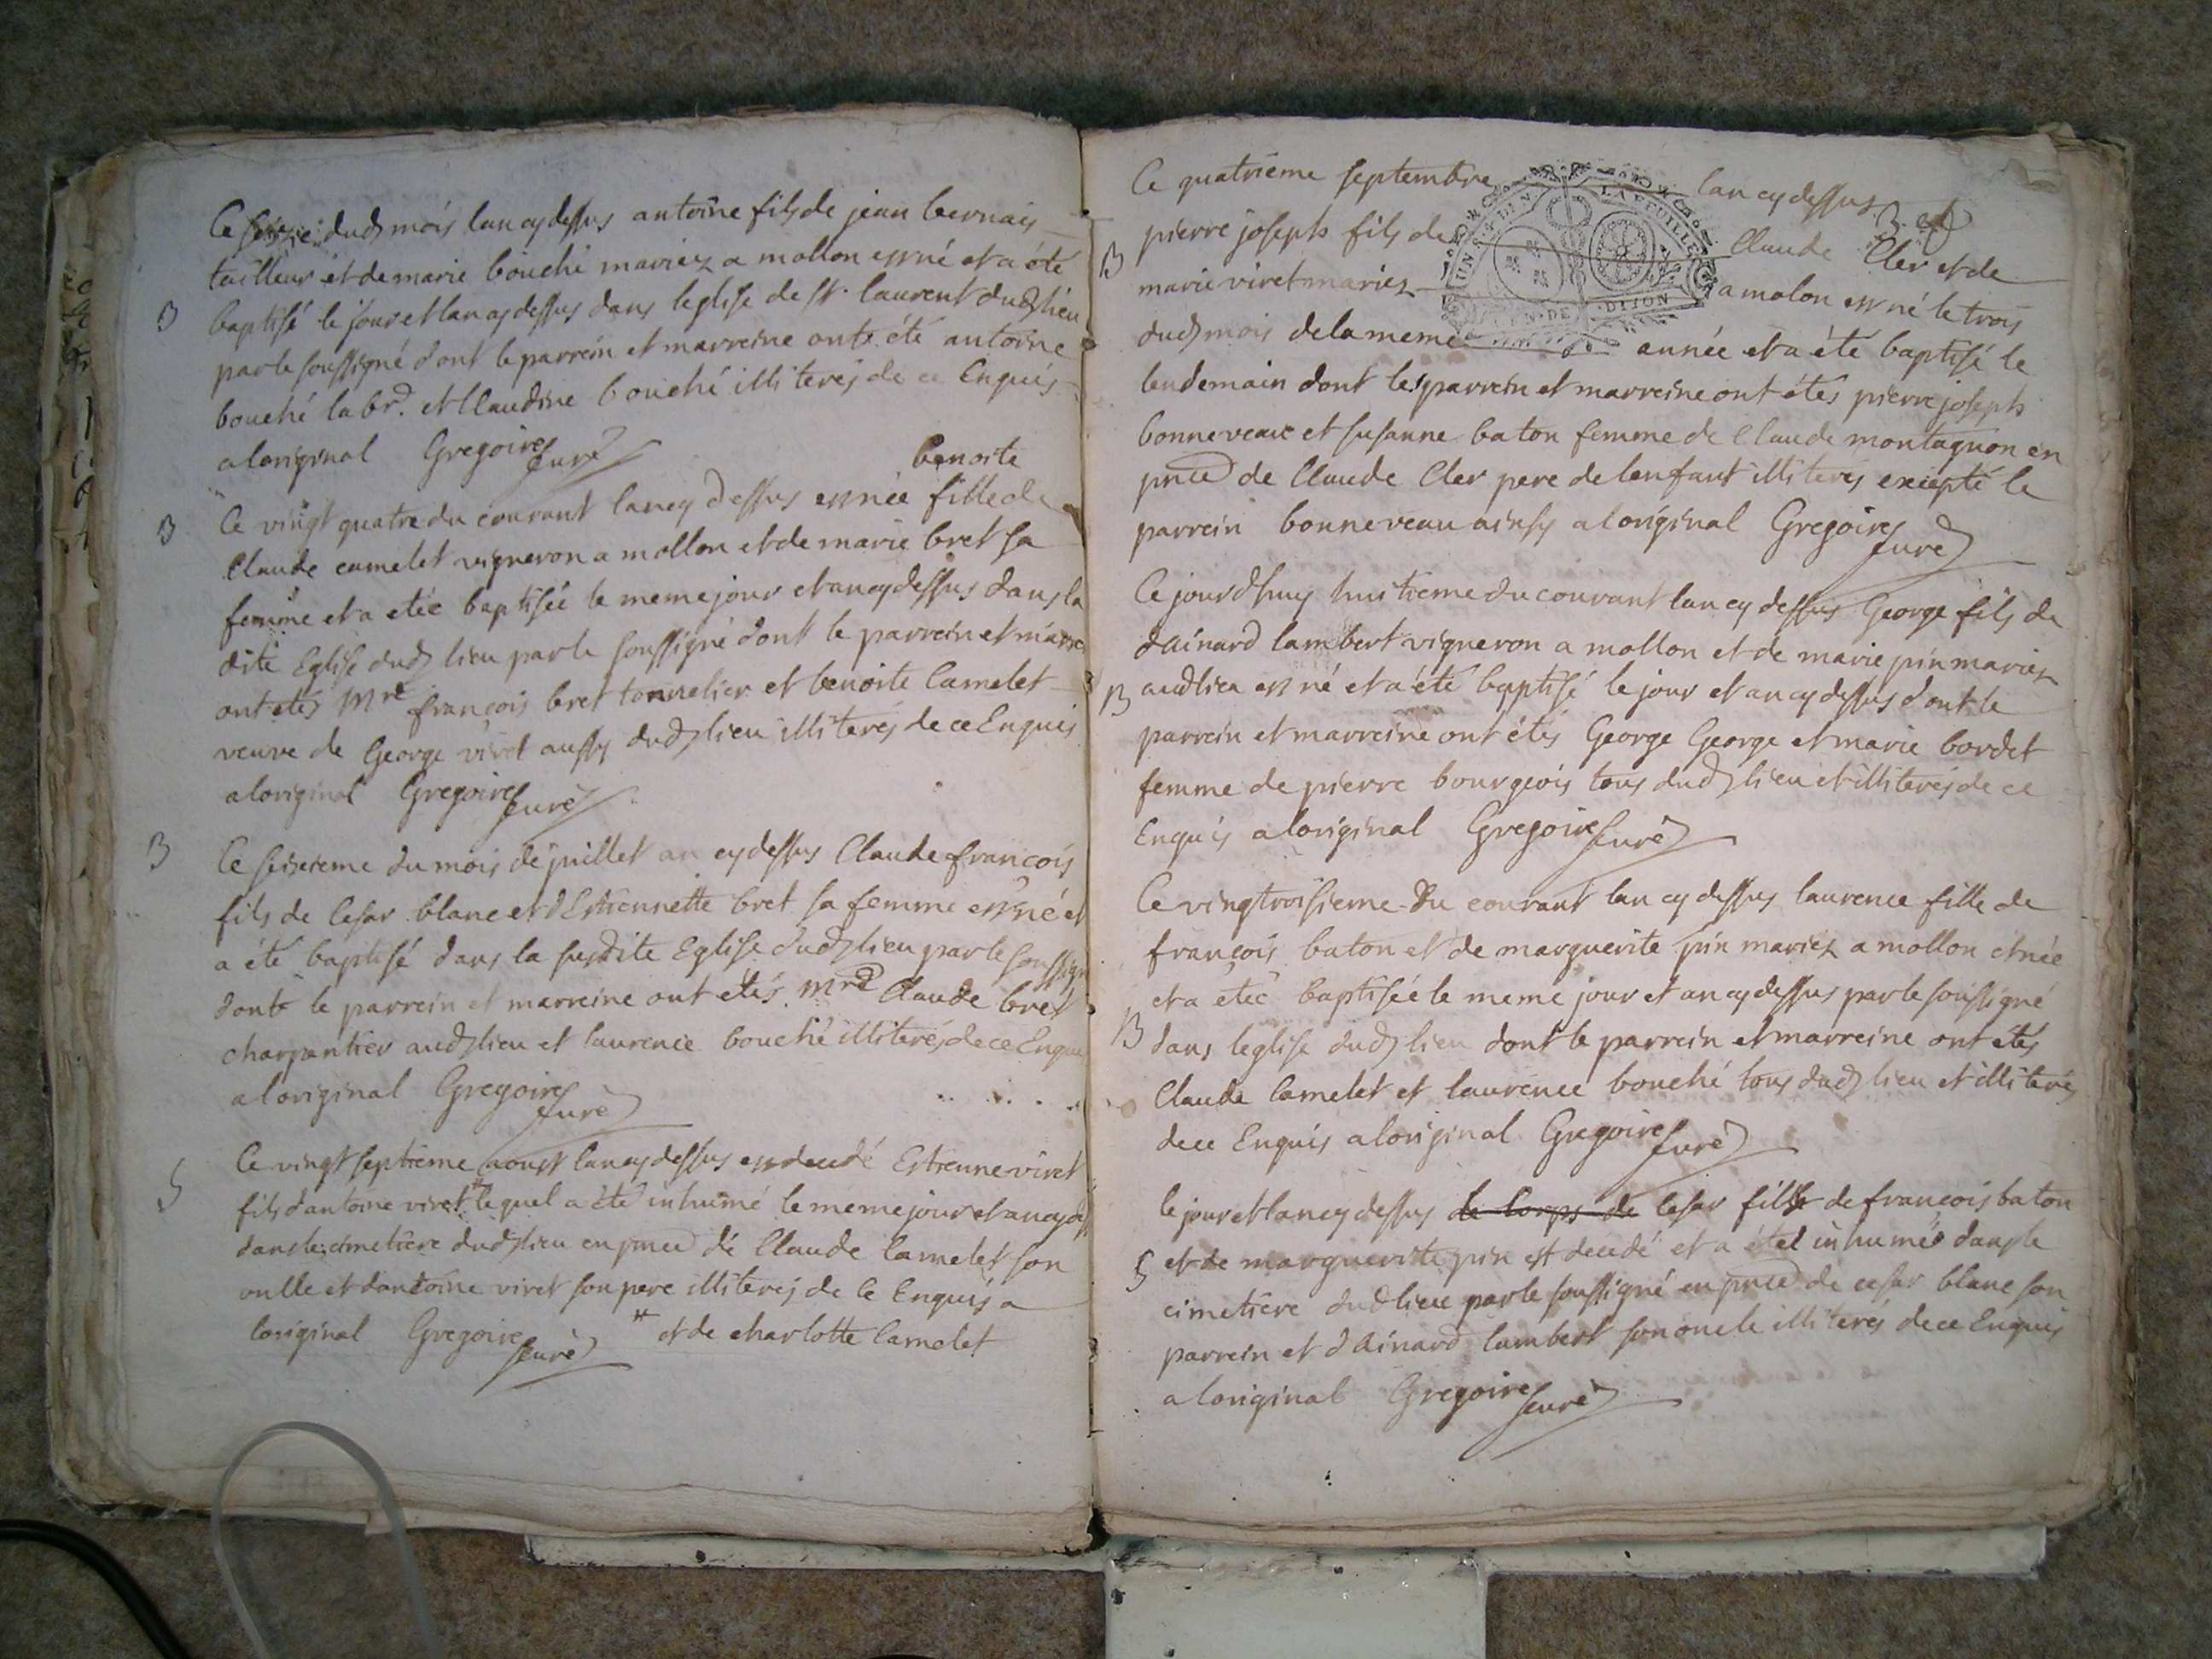 Ce dud mois lan cy dessus antoine fils de jean bernais
tailleur et de marie bouché mariez a mollon est né et a été
B
baptisé le jour et lan cy dessus dans leglise de st. laurent dud lieu
par le soussigné dont le parrein et marreine onts été antoine
bouché labr. et Claudine bouché illiterés de ce Enquis
a loriginal Gregoire Curé
benoite
B
Ce vingt quatre du courant lan cy dessus est née fille de
Claude camelet vigneron a mollon et de marie bret sa
femme et a etée baptisée le meme jour et an cy dessus dans la
dite Eglise dud lieu par le soussigné dont le parrein et marre
ont etés Mre françois bret tonnelier et benoite Camelet
veuve de George viret aussy dud lieu illiterés de ce Enquis
a loriginal Gregoire Curé
B
Ce seizieme du mois de juillet an cy dessus Claude françois
fils de Cesar blanc et dEstiennette bret sa femme est né et
a été baptisé dans la susdite Eglise dud lieu par le soussign
dont le parrein et marreine ont étés Mre Claude bret
charpantier aud lieu et laurence bouché illiterés de ce Enqui
a loriginal Gregoire Curé
S
Ce vingt septieme aoust lan cy dessus est decedé Estienne viret
fils dantoine viret # lequel a été inhumé le meme jour et an cy dess
dans le cimetiere dud lieu en pnce de Claude Camelet son
onlle et dantoine viret son pere illiterés de ce Enquis a
loriginal Gregoire Curé # et de charlotte Camelet
Ce quatrieme septembre lan cy dessus
pierre joseph fils de Claude Cler et de
B
marie viret mariez a molon est né le trois
dud mois de la meme année et a été baptisé le
lendemain dont les parrein et marreine ont étés pierre joseph
bonneveau et susanne baton femme de Claude montagnon en
pnce de Claude Cler pere de lenfant illiteres excepté le
parrein bonneveau ainsy a loriginal Gregoire Curé
Ce jourdhuy huitieme du courant lan cy dessus George fils de
dAinard lambert vigneron a mollon et de marie pin mariez
B
aud lieu est né et a été baptisé le jour et an cy dessus dont le
parrein et marreine ont étés George George et marie bordet
femme de pierre bourgeois tous dud lieu et illiterés de ce
Enquis a loriginal Gregoire Curé
Ce vingtroisieme du courant lan cy dessus laurence fille de
françois baton et de marguerite pin mariez a mollon et née
et a etée baptisée le meme jour et an cy dessus par le soussigné
B
dans leglise dud lieu dont le parrein et marreine ont étés
Claude Camelet et laurence bouché tous dud lieu et illiterés
de ce Enquis a loriginal Gregoire Curé
le jour et lan cy dessus de Corps de Cesar fils de françois baton
S
et de marguerite pin est decedé et a été inhumé dans le
cimetiere dud lieu par le soussigné en pnce de cesar blanc son
parrein et dAinard lambert son oncle illiterés de ce Enquis
a loriginal Gregoire Curé